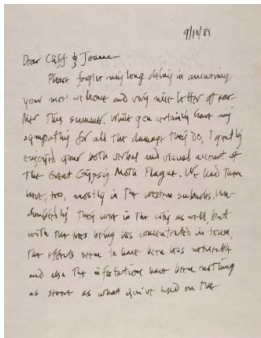 9/10/81
Dear Cliff & Joanne
Please forgive my long delay in answering
your most welcome and very nice letter of ear-
lier this summer. While you certainly have my
sympathy for all the damage they do, I greatly
enjoyed your both verbal and visual account of
The Great Gypsy Moth Plague. We had them
here, too, mostly in the western suburbs. Un-
doubtedly they were in the city as well but
with the trees being less concentrated in town,
the effects seem to have been less noticeable
and also the infestations have been nothing
as severe as what you've had on the